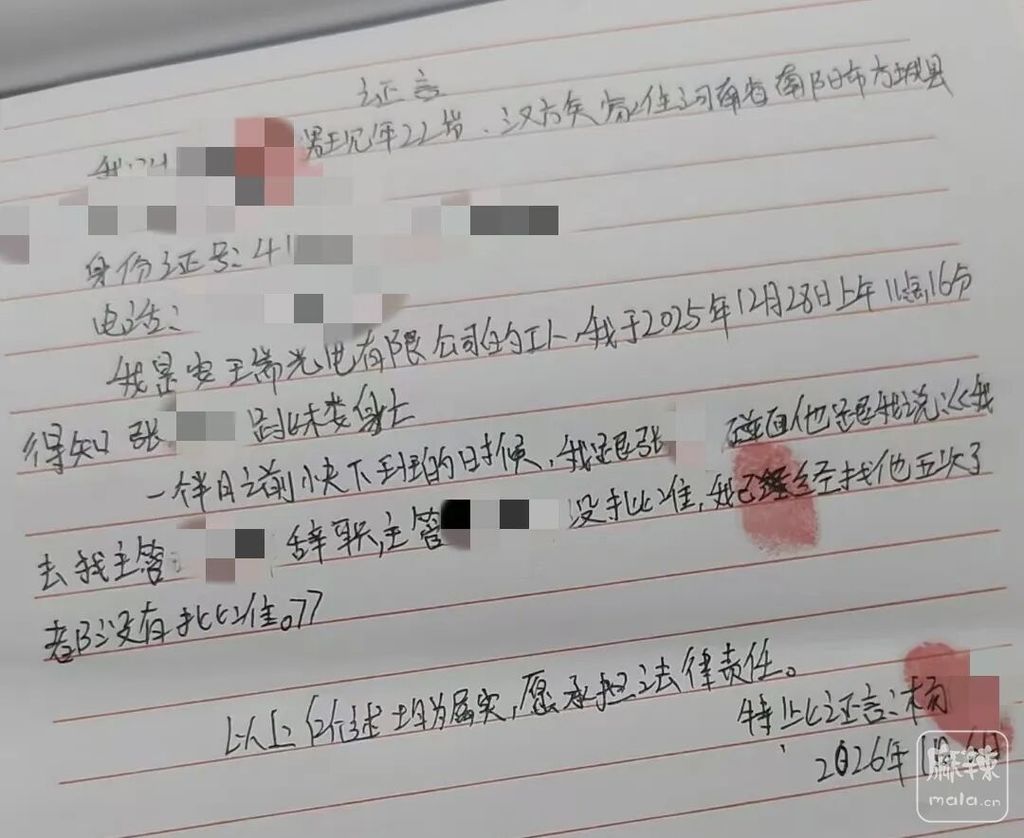 证言
男现年22岁、汉族家住河南省南阳市方城县
身份证号:41
电话:
我是安王瑞光电有限公司的工人.我于2025年12月28日上午11点16分
得知张 跳楼身亡
一个半月之前小夜下班的时候,我跟张 碰面他跟我说:《我
去找主管 辞职,主管 没批准,我已经找他五次了
都没有批准。》
以上仅述均为属实,愿承担法律责任。
特此证言:杨
2026年
麻辣
mala.cn